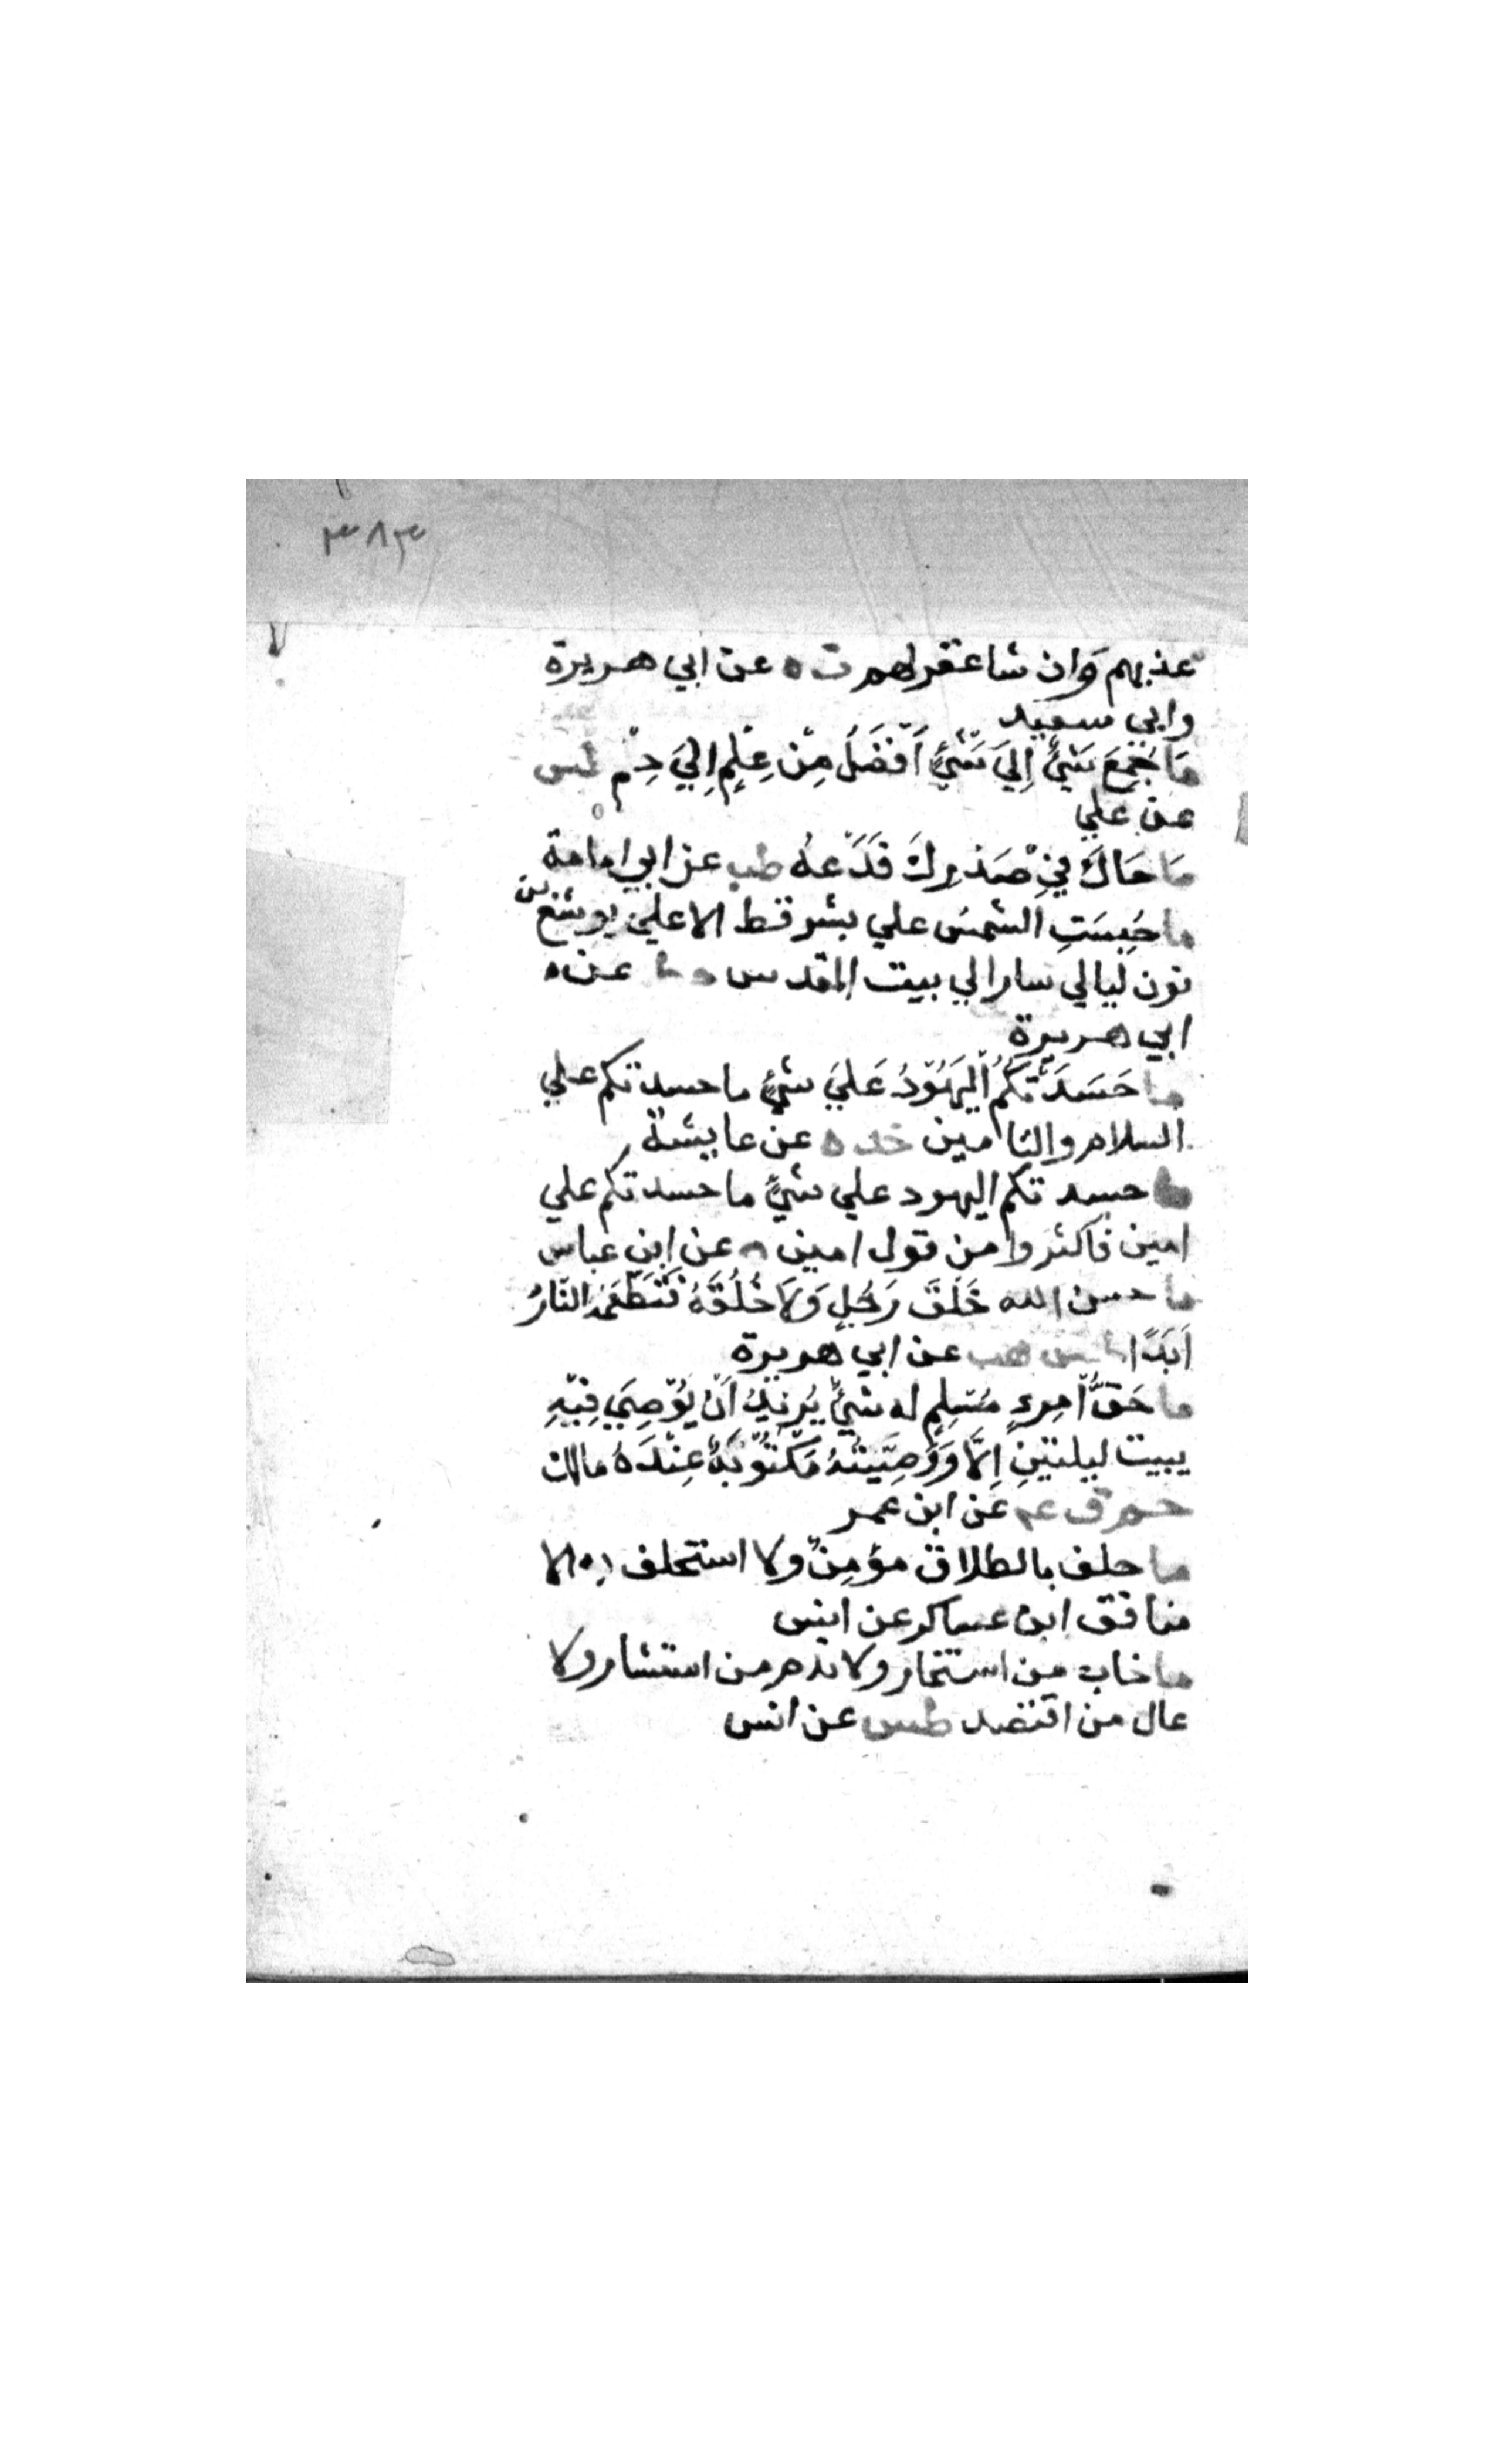 ٣٨٣
عذبهم وَان شا غفر لهم ت ه عن ابي هريرة
وابي سعيد
مَا جُمِعَ شَيْءٌ اِلَيَ شَيْءٍ اَفْضَلَ مِنْ عِلْمٍ اِلَيَ حِلْمٍ طس
عن علي
مَا حَاكَ فِيْ صَدْرِكَ فَدَعْهُ طب عن ابي امامة
ما حُبِسَتِ الشمسُ علي بشر قط الا علي يوشع بن
نون ليالي سار الي بيت المقدس خط عن
ابي هريرة
ما حَسَدَتْكُمُ الْيَهُوْدُ عَلَيَ شيءٍ ما حسدتكم علي
السلام والتامين خد ه عن عايشة
ما حسدتكم اليهود علي شيءٍ ما حسدتكم علي
امين فاكثروا من قول امين ه عن ابن عباس
ما حسن الله خَلْقَ رَجُلٍ وَلَا خُلُقَهُ فَتَطْعَمَهُ النَّارُ
اَبَدًا طس هب عن ابي هريرة
ما حَقُّ امْرِءٍ مُسْلِمٍ له شيءٌ يُرِيْدُ اَنْ يُوْصِيَ فِيْهِ
يبيت ليلتينِ اِلَّا وَوَصِيَّتُهُ مَكْتُوْبَةٌ عِنْدَهُ مالك
حم ق عه عن ابن عمر
ما حلف بالطلاق مؤمِنٌ ولا استحلف به الا
منافق ابن عساكر عن انس
ما خاب من استخار ولا ندم من استشار ولا
عال من اقتصد طس عن انس